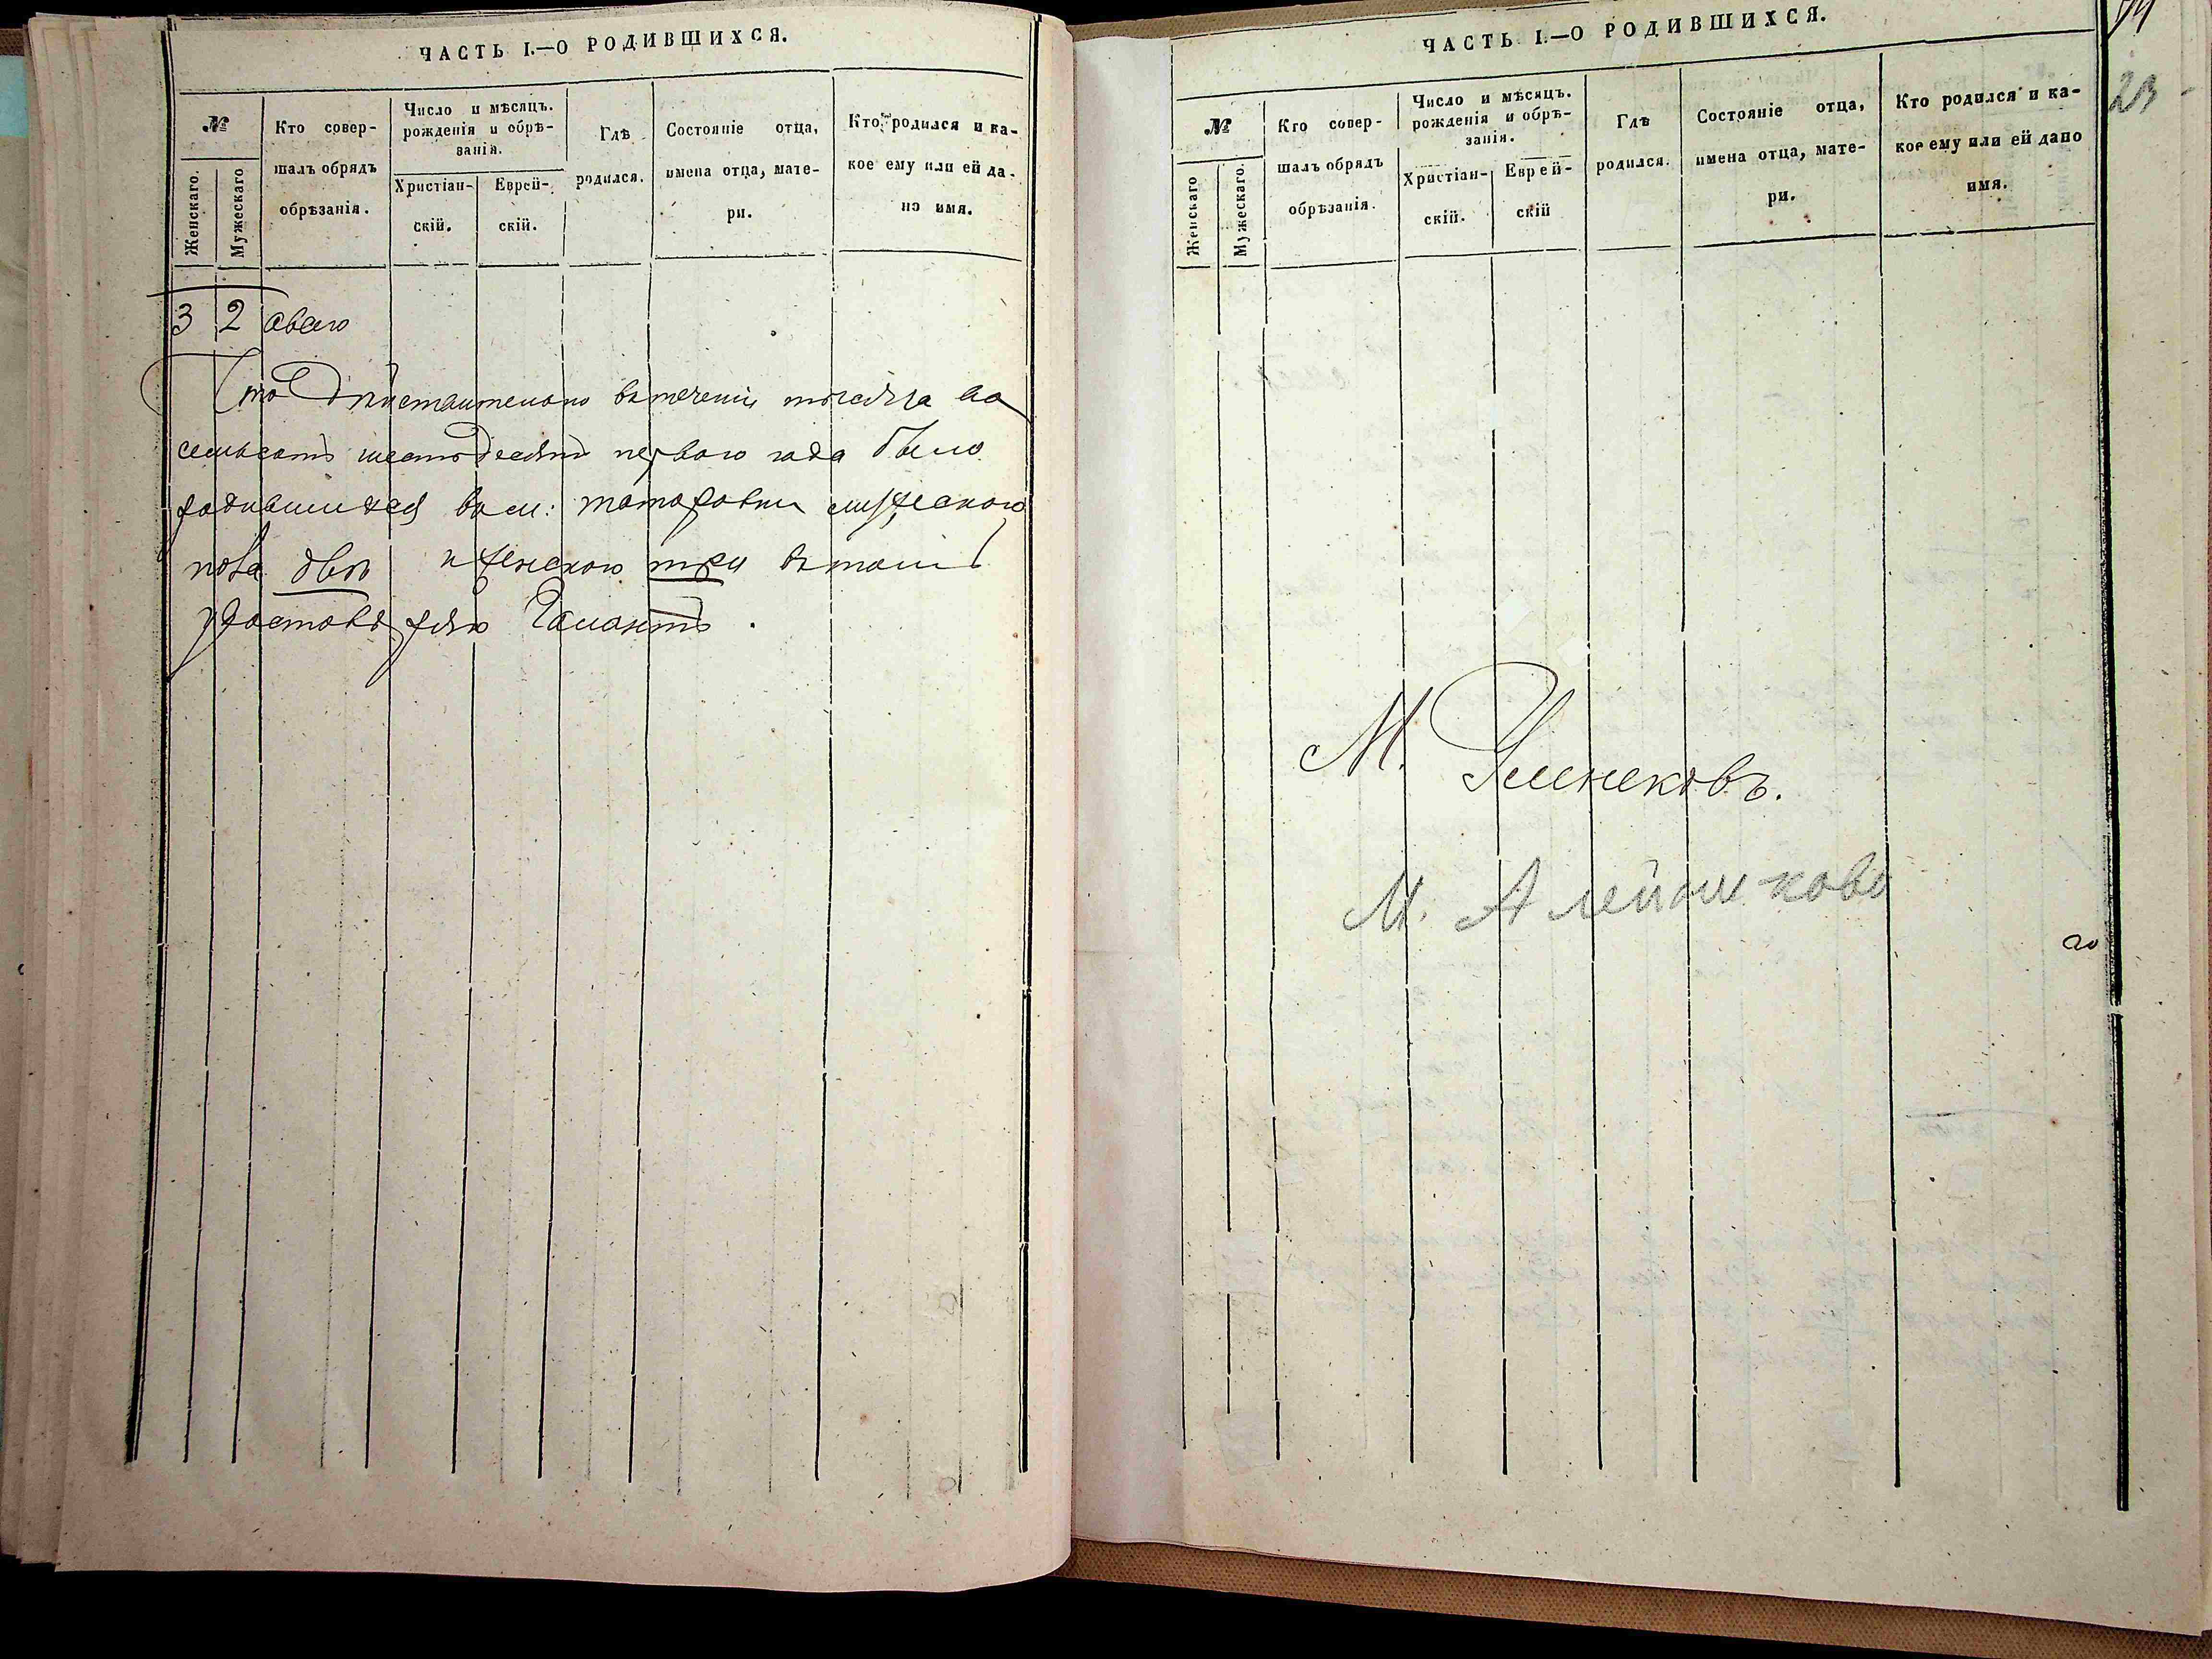 ЧАСТЬ I.—О РОДИВШИХСЯ.
№
Женскаго.
Мужескаго
Кто совер-
шалъ обрядъ
обрѣзанія.
Число и мѣсяцъ.
рожденія и обрѣ-
занія.
Христіан-
скій.
Еврей-
скій.
Гдѣ
родился.
Состояніе отца,
имена отца, мате-
ри.
Кто родился и ка-
кое ему или ей да-
но имя.
3 2 всего
Что Дѣйствительно въ теченіи тысяча во
семьсотъ шестьдесятъ перваго года было
родившихся въ м: Татаровки мужескаго
пола два и женскаго три въ томъ
удостовѣряю
ЧАСТЬ I.—О РОДИВШИХСЯ.
№
Женскаго
Мужескаго.
Кто совер-
шалъ обрядъ
обрѣзанія.
Число и мѣсяцъ.
рожденія и обрѣ-
занія.
Христіан-
скій.
Еврей-
скій
Гдѣ
родился.
Состояніе отца,
имена отца, мате-
ри.
Кто родился и ка-
кое ему или ей дано
имя.
23
М.
М. Алейниковъ
го